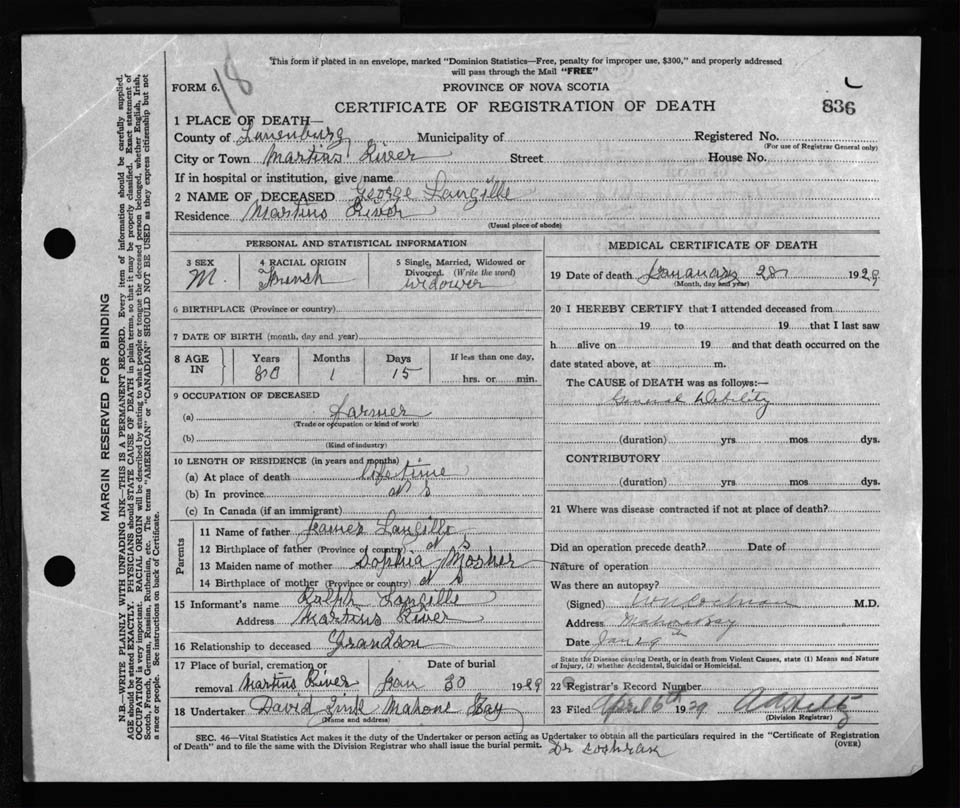 This form if placed in an envelope, marked "Dominion Statistics—Free, penalty for improper use, $300," and properly addressed
will pass through the Mail "FREE"
FORM 6.
18
PROVINCE OF NOVA SCOTIA
CERTIFICATE OF REGISTRATION OF DEATH
836
1 PLACE OF DEATH—
County of Lunenburg Municipality of Registered No.
(For use of Registrar General only)
City or Town Martins River Street House No.
If in hospital or institution, give name
2 NAME OF DECEASED George Langille
Residence Martins River
(Usual place of abode)
PERSONAL AND STATISTICAL INFORMATION
3 SEX 4 RACIAL ORIGIN 5 Single, Married, Widowed or
Divorced. (Write the word)
M. French widower
6 BIRTHPLACE (Province or country)
7 DATE OF BIRTH (month, day and year)
8 AGE IN Years Months Days If less than one day,
80 1 15 hrs. or min.
9 OCCUPATION OF DECEASED
(a) Farmer
(Trade or occupation or kind of work)
(b)
(Kind of industry)
10 LENGTH OF RESIDENCE (in years and months)
(a) At place of death life time
(b) In province N S
(c) In Canada (if an immigrant)
Parents
11 Name of father James Langille
12 Birthplace of father (Province or country) N S
13 Maiden name of mother Sophia Mosher
14 Birthplace of mother (Province or country) N S
15 Informant's name Ralph Langille
Address Martins River
16 Relationship to deceased Grandson
17 Place of burial, cremation or Date of burial
removal Martins River Jan 30 1929
18 Undertaker David Zink Mahone Bay
(Name and address)
MEDICAL CERTIFICATE OF DEATH
19 Date of death January 28 1929
(Month, day and year)
20 I HEREBY CERTIFY that I attended deceased from
19 , to 19 that I last saw
h alive on 19 and that death occurred on the
date stated above, at m.
The CAUSE of DEATH was as follows:—
General Debility
(duration) yrs mos dys.
CONTRIBUTORY
(duration) yrs mos dys.
21 Where was disease contracted if not at place of death?
Did an operation precede death? Date of
Nature of operation
Was there an autopsy?
(Signed) Cochran M.D.
Address Mahone Bay
Date Jan 29th
State the Disease causing Death, or in death from Violent Causes, state (1) Means and Nature
of Injury, (2) whether Accidental, Suicidal or Homicidal.
22 Registrar's Record Number
23 Filed April 6th 1929
(Division Registrar)
SEC. 46—Vital Statistics Act makes it the duty of the Undertaker or person acting as Undertaker to obtain all the particulars required in the "Certificate of Registration
of Death" and to file the same with the Division Registrar who shall issue the burial permit. Dr Cochran
(OVER)
MARGIN RESERVED FOR BINDING
N.B.—WRITE PLAINLY WITH UNFADING INK—THIS IS A PERMANENT RECORD. Every item of information should be carefully supplied.
AGE should be stated EXACTLY. PHYSICIANS should STATE CAUSE OF DEATH in plain terms, so that it may be properly classified. Exact statement of
OCCUPATION is very important. RACIAL ORIGIN will be described by stating to what people or tongue the deceased person belonged, whether English, Irish,
Scotch, French, German, Russian, Ruthenian, etc. The terms "AMERICAN" or "CANADIAN" SHOULD NOT BE USED as they express citizenship but not
a race or people. See instructions on back of Certificate.